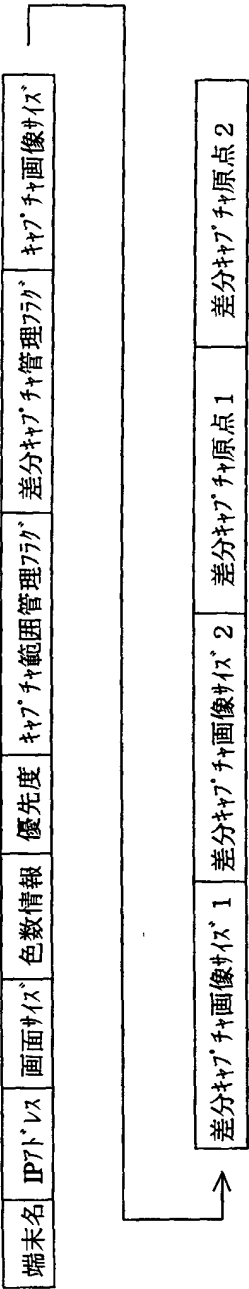 端末名 IPアドレス 画面サイズ 色数情報 優先度 キャプチャ範囲管理フラグ 差分キャプチャ管理フラグ キャプチャ画像サイズ
差分キャプチャ画像サイズ1 差分キャプチャ画像サイズ2 差分キャプチャ原点1 差分キャプチャ原点2